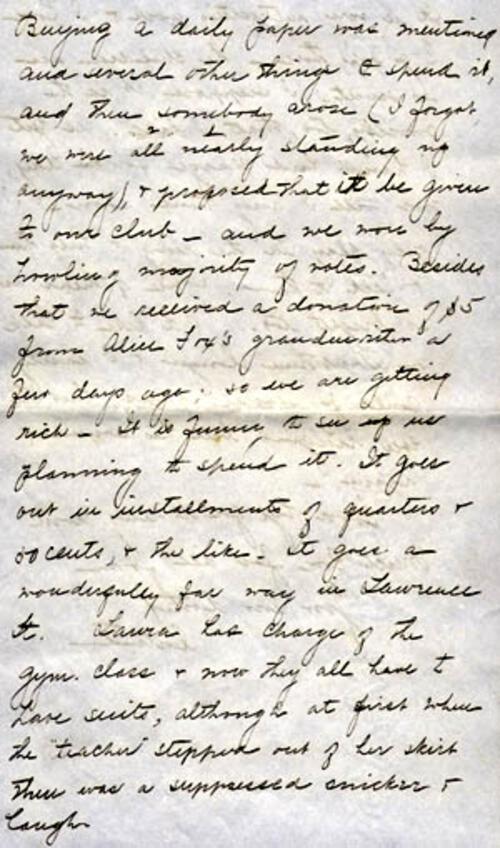 Buying a daily paper was mentioned
and several other things to spend it,
and then somebody arose (I forgot,
we were all nearly standing up
anyway), + proposed that it be given
to our club - and we won by
howling majority of votes. Besides
that we received a donation of $5
from Alice Fox's a
few days ago; so we are getting
rich - It is funny to see us
planning to spend it. It goes
out in installments of quarters +
50 cents, + the like. It goes a
wonderfully far way in Lawrence
St. Laura has charge of the
gym. class + now they all have to
have suits, although at first when
the "teacher" stepped out of her skirt
there was a suppressed snicker +
laugh